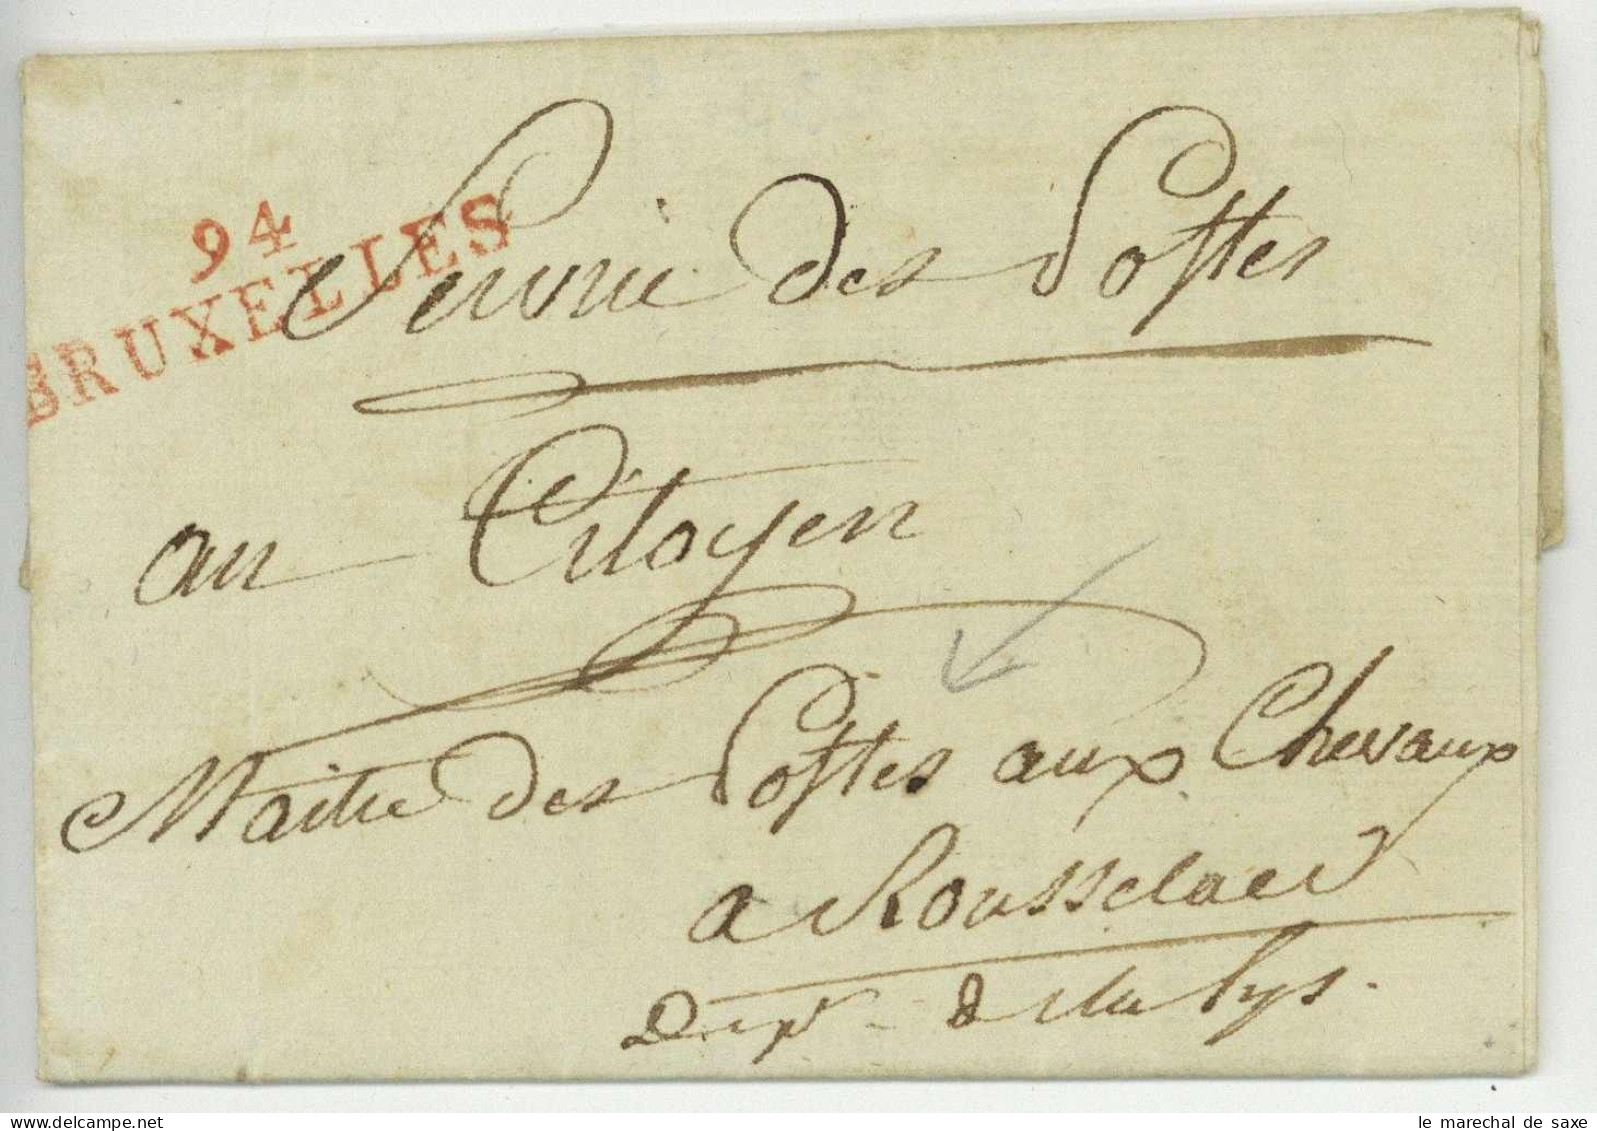 94
BRUXELLES
Service des Postes
au Citoyen
Maitre des Postes aux Chevaux
a Rousselaer
Dept de la Lys.
le marechal de saxe